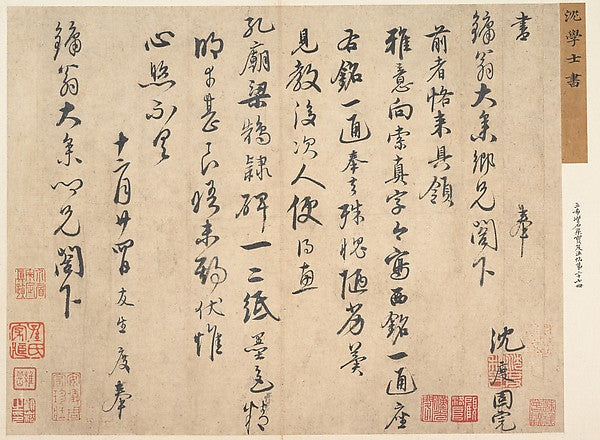 沈學士書
沈度
奉
書
鏞翁大參鄉兄閣下
前者恪來具領
雅意向索真字今寫西銘一通座
右銘一通奉去殊愧陋劣冀
見教後次人便得惠
孔廟梁鵠隸碑一二紙墨色精
明者甚良晤未期伏惟
心照不具
十二月廿四日友生度奉
鏞翁大參鄉兄閣下